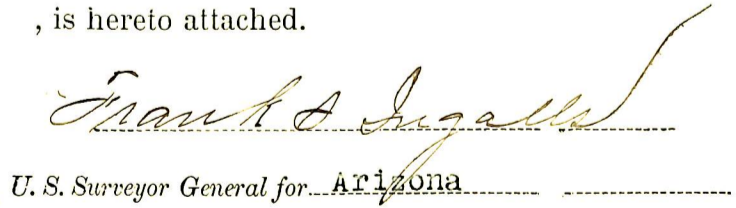 , is hereto attached.
Frank S Ingalls
U. S. Surveyor General for Arizona